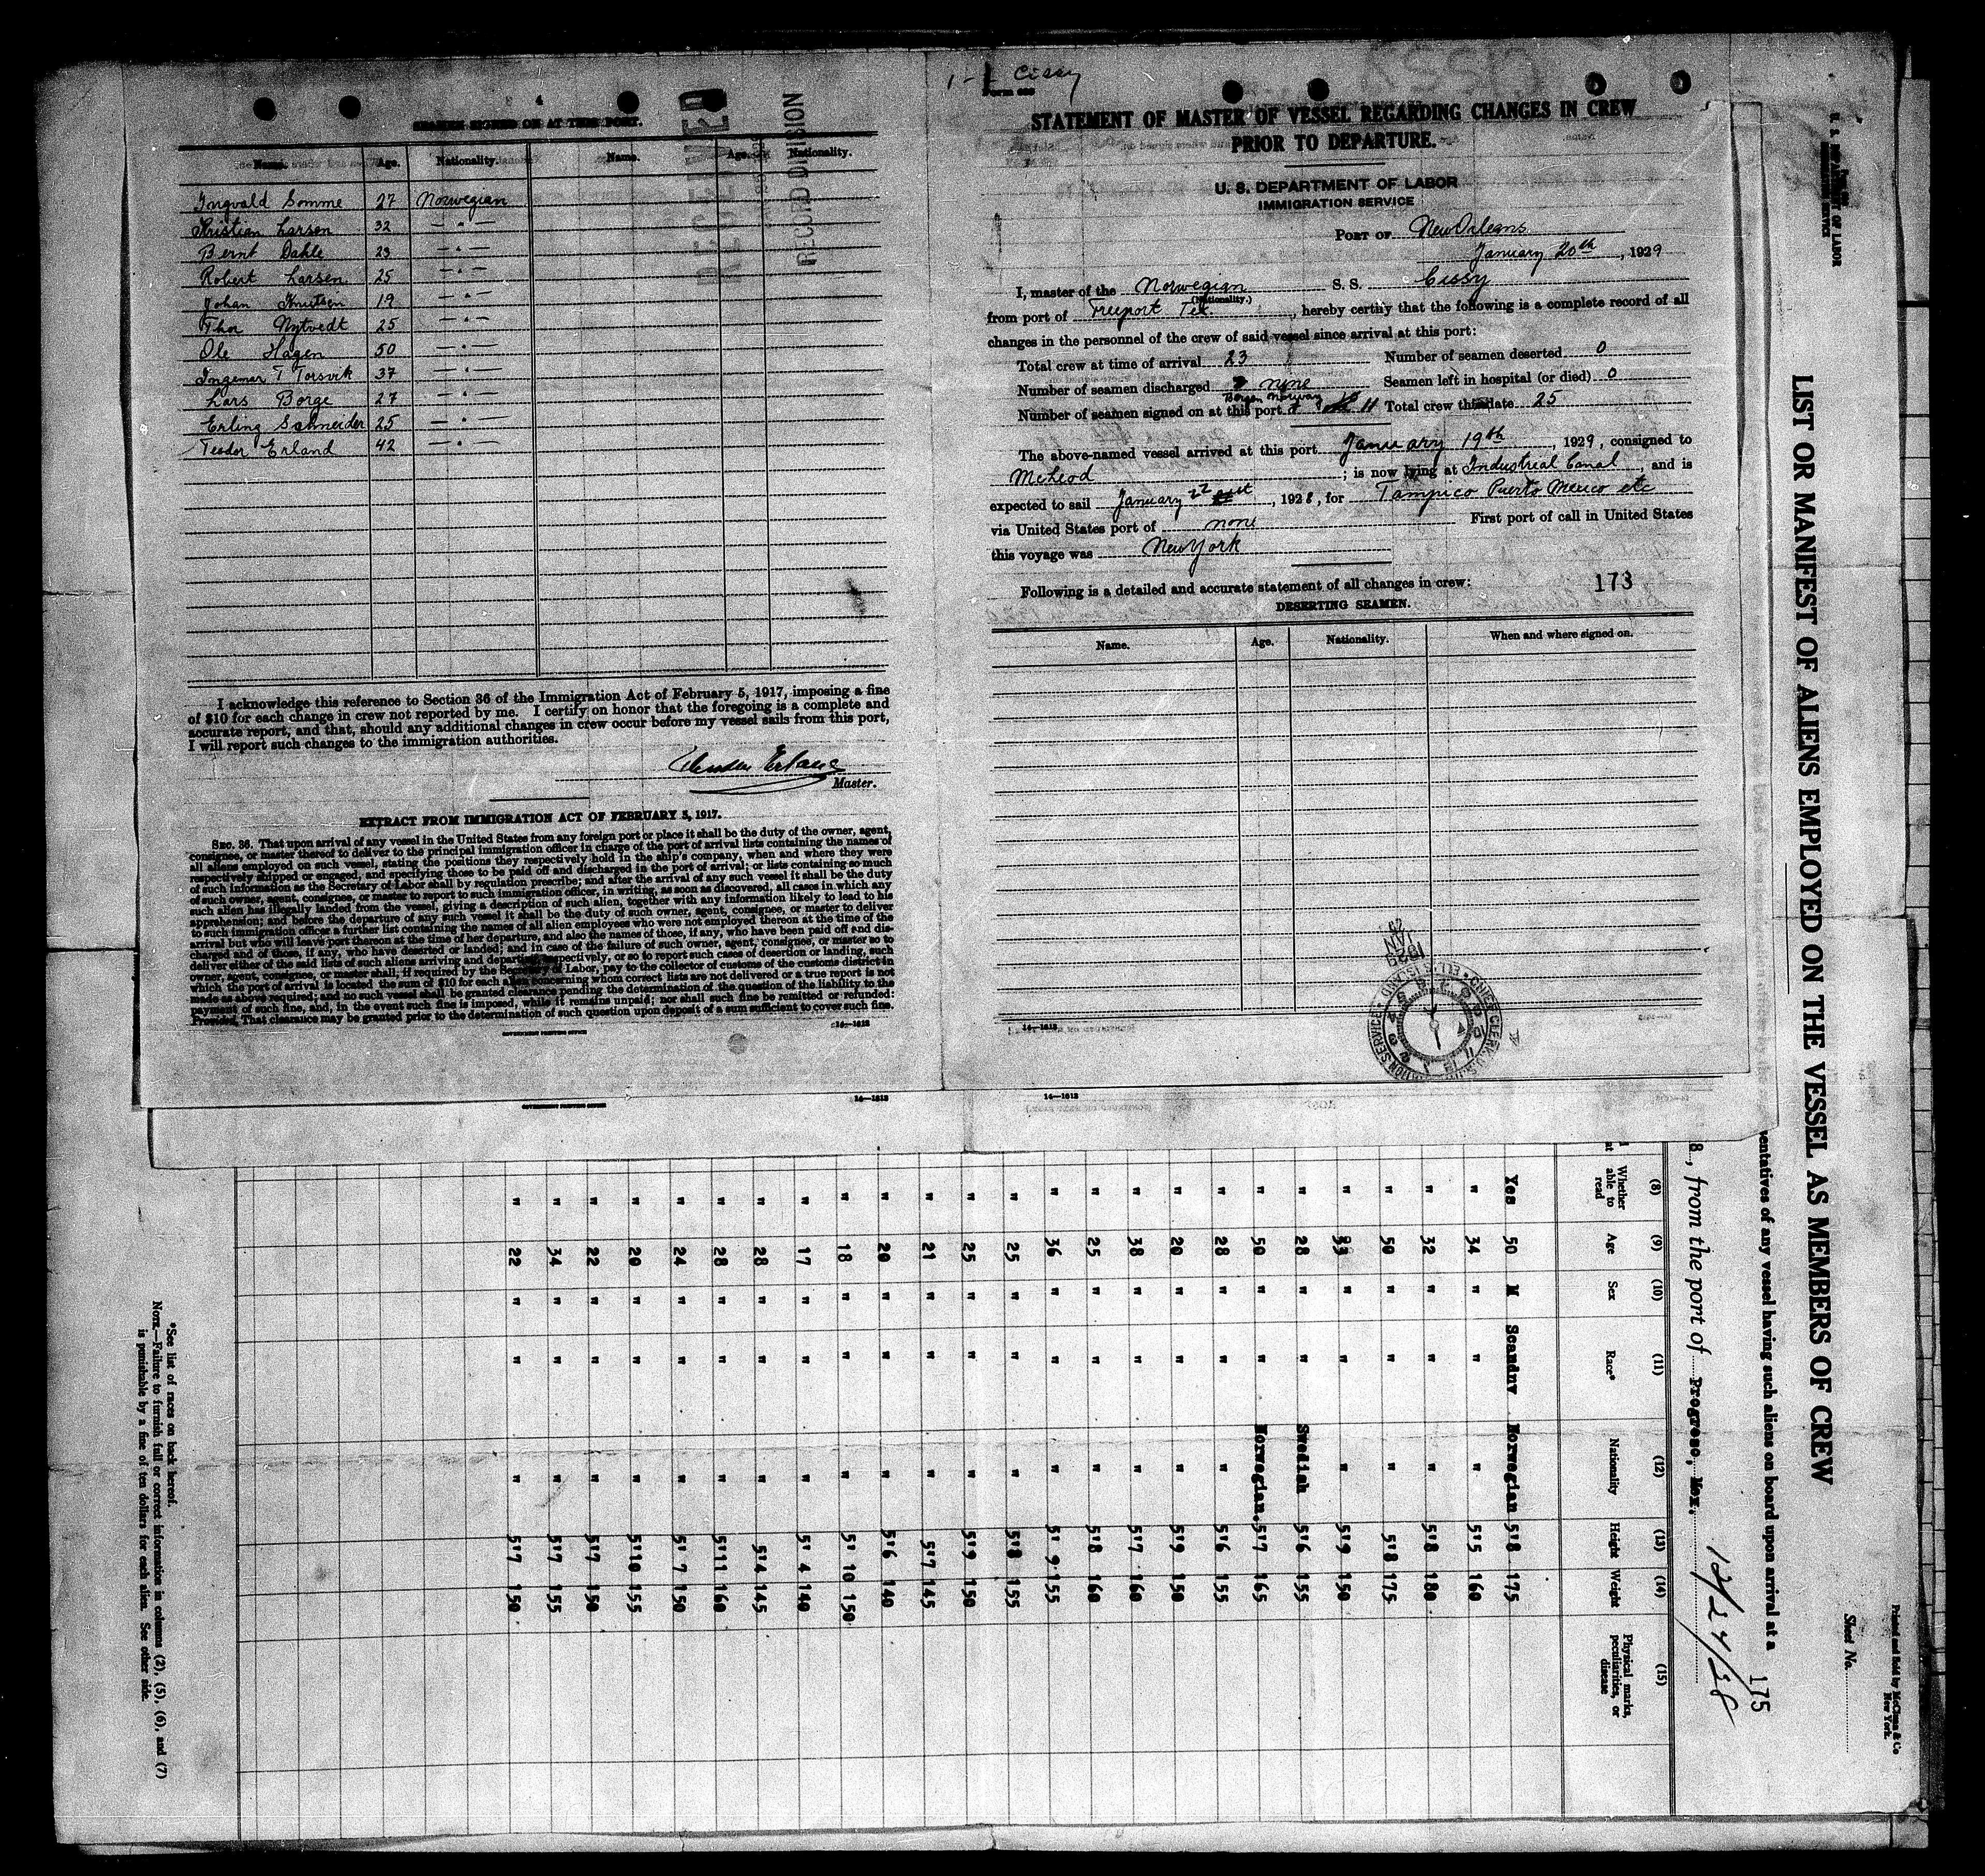 4
SEAMEN SIGNED ON AT THIS PORT.
Name. Age. Nationality. Name. Age. Nationality.
Ingvald Somme 27 Norwegian
Kristian Larsen 32 — " —
Bernt Dahle 23 — " —
Robert Larsen 25 — " —
Johan Knutsen 19 — " —
Thor Nytvedt 25 — " —
Ole Hagen 50 — " —
Ingemar T Torsvik 37 — " —
Lars Borge 27 — " —
Erling Schneider 25 — " —
Teodor Erland 42 — " —
RECEIVED
RECORD DIVISION
I acknowledge this reference to Section 36 of the Immigration Act of February 5, 1917, imposing a fine
of $10 for each change in crew not reported by me. I certify on honor that the foregoing is a complete and
accurate report, and that, should any additional changes in crew occur before my vessel sails from this port,
I will report such changes to the immigration authorities.
Master.
EXTRACT FROM IMMIGRATION ACT OF FEBRUARY 5, 1917.
SEC. 36. That upon arrival of any vessel in the United States from any foreign port or place it shall be the duty of the owner, agent,
consignee, or master thereof to deliver to the principal immigration officer in charge of the port of arrival lists containing the names of
all aliens employed on such vessel, stating the positions they respectively hold in the ship's company, when and where they were
respectively shipped or engaged, and specifying those to be paid off and discharged in the port of arrival; or lists containing so much
of such information as the Secretary of Labor shall by regulation prescribe; and after the arrival of any such vessel it shall be the duty
of such owner, agent, consignee, or master to report to such immigration officer, in writing, as soon as discovered, all cases in which any
such alien has illegally landed from the vessel, giving a description of such alien, together with any information likely to lead to his
apprehension; and before the departure of any such vessel it shall be the duty of such owner, agent, consignee, or master to deliver
to such immigration officer a further list containing the names of all alien employees who were not employed thereon at the time of the
arrival but who will leave port thereon at the time of her departure, and also the names of those, if any, who have been paid off and dis-
charged and of those, if any, who have deserted or landed; and in case of the failure of such owner, agent, consignee, or master so to
deliver either of the said lists of such aliens arriving and departing, respectively, or so to report such cases of desertion or landing, such
owner, agent, consignee, or master shall, if required by the Secretary of Labor, pay to the collector of customs of the customs district in
which the port of arrival is located the sum of $10 for each alien concerning whom correct lists are not delivered or a true report is not
made as above required; and no such vessel shall be granted clearance pending the determination of the question of the liability to the
payment of such fine, and, in the event such fine is imposed, while it remains unpaid; nor shall such fine be remitted or refunded:
Provided, That clearance may be granted prior to the determination of such question upon deposit of a sum sufficient to cover such fine.
GOVERNMENT PRINTING OFFICE 14—1813
Cissy
STATEMENT OF MASTER OF VESSEL REGARDING CHANGES IN CREW
PRIOR TO DEPARTURE.
U. S. DEPARTMENT OF LABOR
IMMIGRATION SERVICE
PORT OF New Orleans
January 20th, 1929
I, master of the Norwegian S. S. Cissy
(Nationality.)
from port of Freeport Tex., hereby certify that the following is a complete record of all
changes in the personnel of the crew of said vessel since arrival at this port:
Total crew at time of arrival 23 Number of seamen deserted 0
Number of seamen discharged none Seamen left in hospital (or died) 0
Bergen Norway
Number of seamen signed on at this port 11 Total crew this date 25
The above-named vessel arrived at this port January 19th, 1929, consigned to
McLeod; is now lying at Industrial Canal, and is
expected to sail January 22, 1928, for Tampico Puerto Mexico etc
via United States port of none First port of call in United States
this voyage was New York
Following is a detailed and accurate statement of all changes in crew: 173
DESERTING SEAMEN.
Name. Age. Nationality. When and where signed on.
14—1813
JAN
1929
GOVERNMENT PRINTING OFFICE 14—1813 14—1813
U. S. DEPARTMENT OF LABOR
LIST OR MANIFEST OF ALIENS EMPLOYED ON THE VESSEL AS MEMBERS OF CREW
Sheet No.
Printed and Sold by McClean & Co
New York
entatives of any vessel having such aliens on board upon arrival at a 175
8, from the port of Progreso, Mex. 12/24/28
(8) (9) (10) (11) (12) (13) (14) (15)
Whether able to read Age Sex Race* Nationality Height Weight Physical marks, peculiarities, or disease
Yes 50 M Scandnv Norwegian 5'8 175
" 34 " " " 5'5 160
" 32 " " " 5'8 180
" 50 " " " 5'8 175
" 33 " " " 5'9 150
" 28 " " Swedish 5'6 155
" 50 " " Norwegian. 5'7 165
" 28 " " " 5'6 155
" 20 " " " 5'9 150
" 38 " " " 5'7 160
" 25 " " " 5'8 160
" 36 " " " 5'9 155
" 25 " " " 5'8 155
" 25 " " " 5'9 150
" 21 " " " 5'7 145
" 20 " " " 5'6 140
" 18 " " " 5'10 150
" 17 " " " 5'4 140
" 28 " " " 5'4 145
" 28 " " " 5'11 160
" 24 " " " 5'7 150
" 20 " " " 5'10 155
" 22 " " " 5'7 150
" 34 " " " 5'7 155
" 22 " " " 5'7 150
*See list of races on back hereof.
NOTE.—Failure to furnish full or correct information in columns (2), (5), (6), and (7)
is punishable by a fine of ten dollars for each alien. See other side.